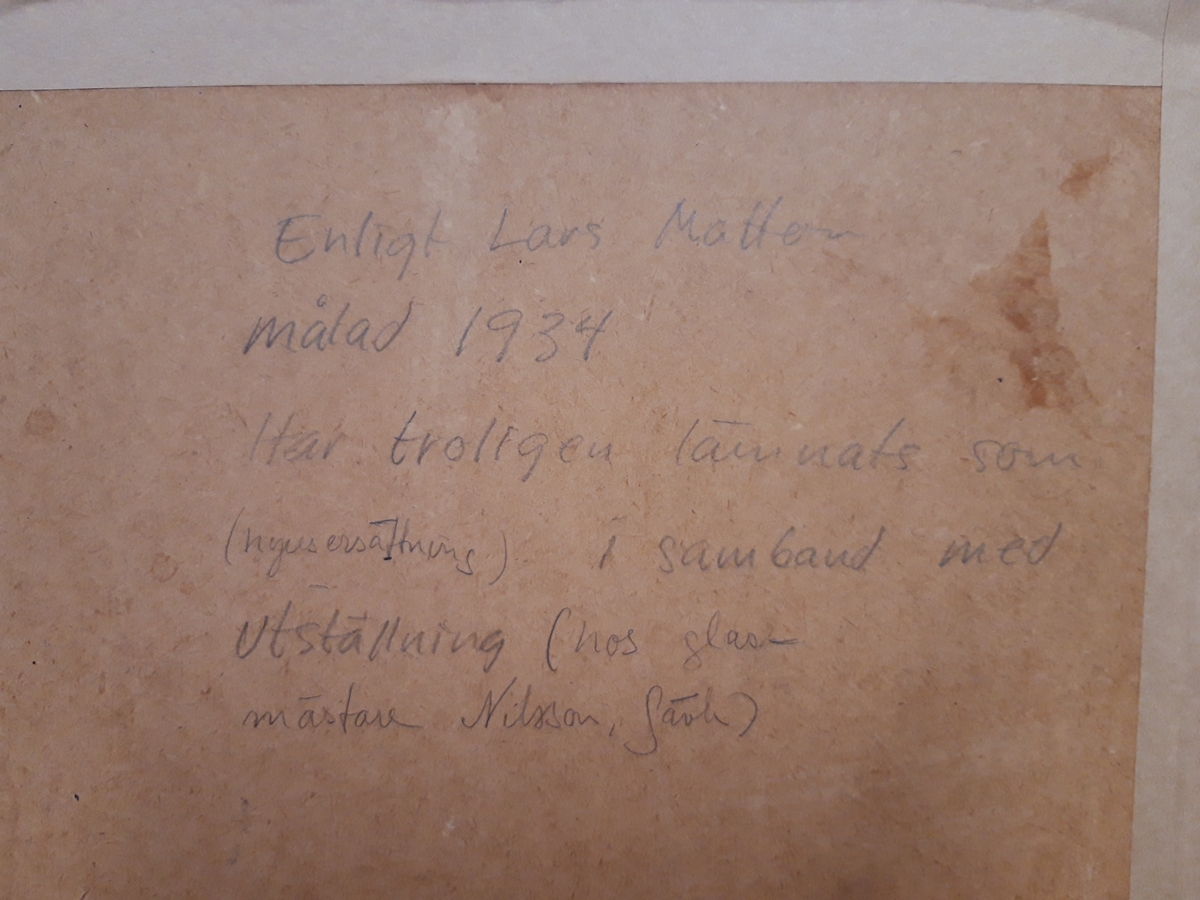 Enligt Lars
målad 1934
Har troligen lämnats som
(hyresersättning) i samband med
Utställning (hos glas-
mästare Nilsson, Gävle)